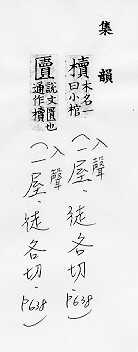 集韻
櫝木名一
曰小棺
入聲
(一屋．徒各切．P638)
匵說文匱也
通作櫝
入聲
(一屋．徒各切．P638)